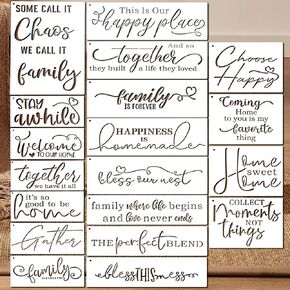 SOME CALL IT
Chaos
WE CALL IT
family
STAY
awhile
welcome
TO OUR HOME
together
we have it all
it's so
good to be
home
Gather
family
This is Our
happy place
And so
together
they built a life they loved
family
IS FOREVER
HAPPINESS
is
homemade
bless our nest
family where life begins
and love never ends
THE perfect BLEND
bless THIS mess
Choose
Happy
Coming
Home
to you is my
favorite
thing
Home
sweet
Home
COLLECT
Moments
NOT
things